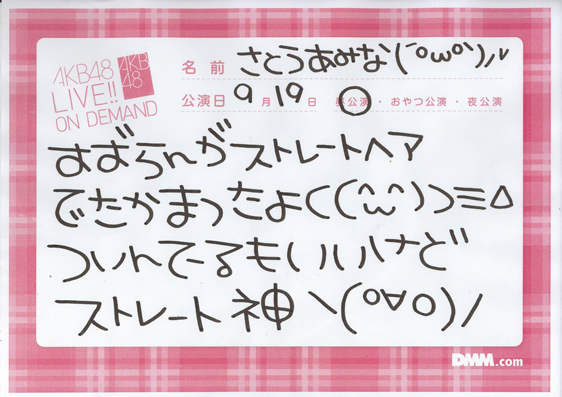 AKB48
LIVE!!
ON DEMAND
AKB
48
名前 さとうあみな(´°ω°`)ﾉﾚ
公演日 9月19日 昼公演・おやつ公演・夜公演
すずらんがストレートヘア
でたかまったよ((^ω^)つ三△
ついんてーるもいいけど
ストレート神＼(°∀°)／
DMM.com